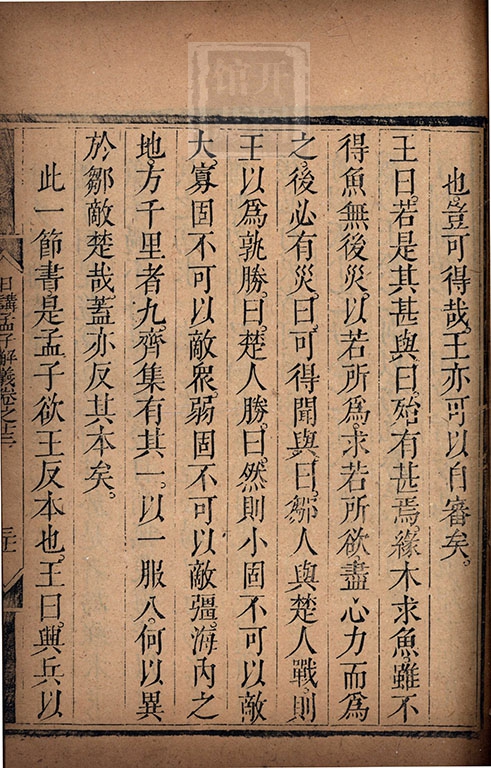 也豈可得哉。王亦可以自審矣。
王曰。若是其甚與。曰。殆有甚焉。緣木求魚雖不
得魚無後災。以若所爲。求若所欲。盡心力而爲
之。後必有災。曰。可得聞與。曰。鄒人與楚人戰。則
王以爲孰勝。曰。楚人勝。曰。然則小固不可以敵
大。寡固不可以敵衆。弱固不可以敵彊。海內之
地。方千里者九。齊集有其一。以一服八。何以異
於鄒敵楚哉。蓋亦反其本矣。
此一節書。是孟子欲王反本也。王曰。興兵以
日講孟子解義卷之十三